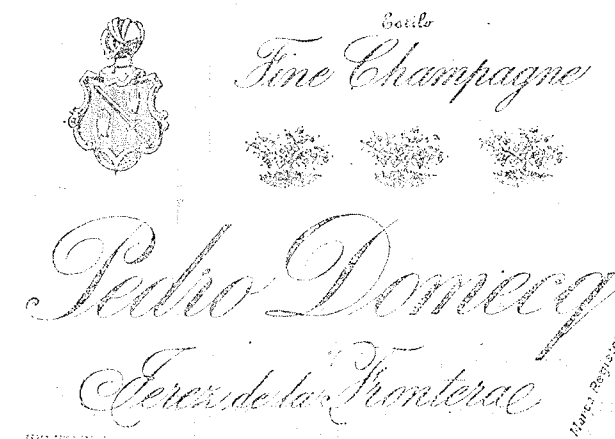 Estilo
Fine Champagne
Pedro Domecq
Jerez de la Frontera
Marca Regist